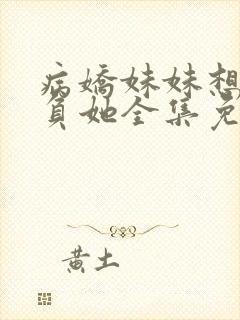 病嬌妹妹想
負她全集免
黃土